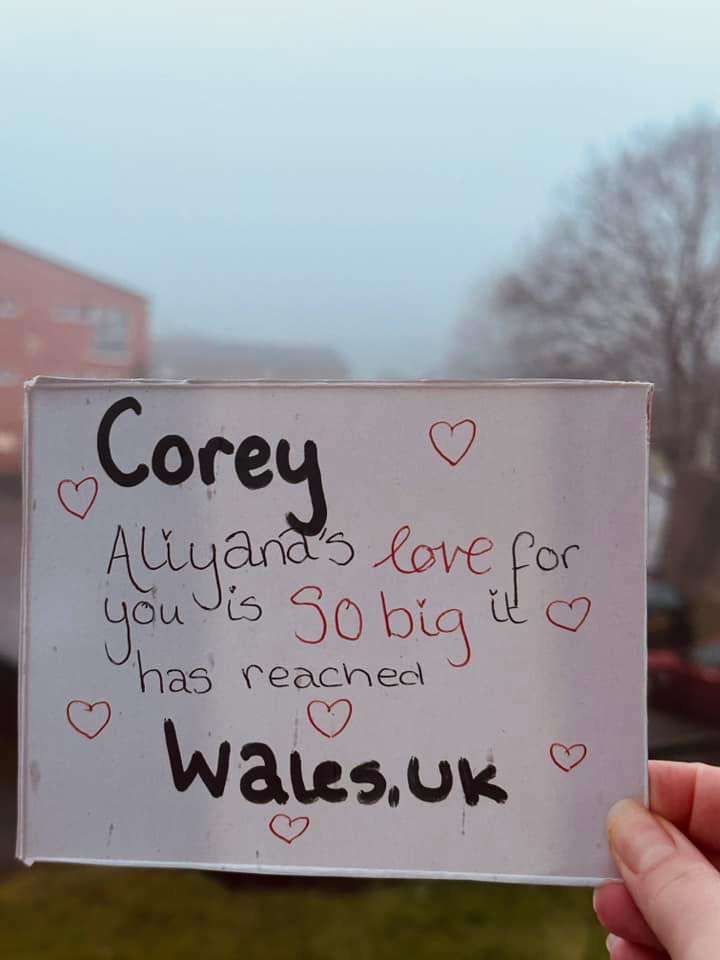 Corey
Aliyana's love for
you is SO big it
has reached
Wales, UK